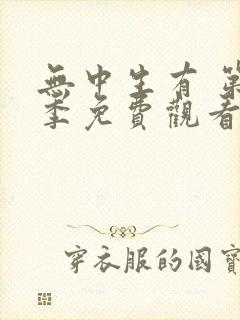 無中生有 第
季免費觀看
穿衣服的國寶